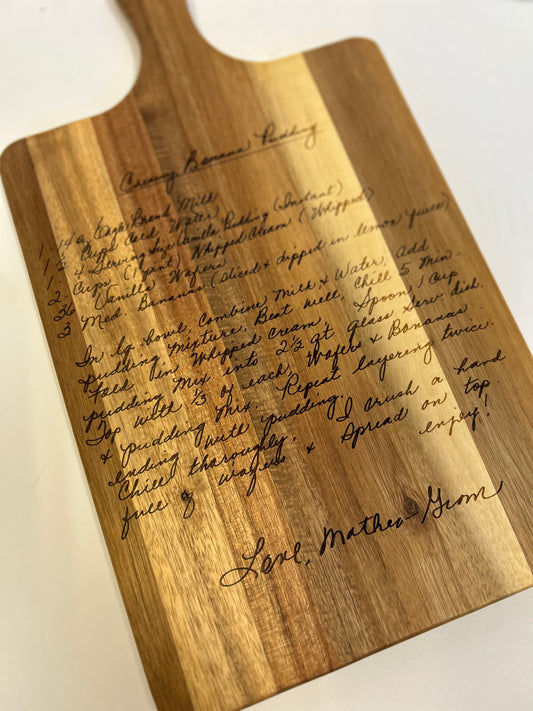 Creamy Banana Pudding
1 - 14 oz Eagle Brand Milk
1 1/2 Cups Cold Water
1 - 4 Serving size Vanilla Pudding (Instant)
2 - Cups (1 pint) Whipped Cream (Whipped)
36 Vanilla Wafers
3 Med. Bananas (Sliced & dipped in lemon juice)
In lg. bowl, combine Milk & Water, Add
pudding mixture, Beat well, Chill 5 Min.
Fold in Whipped Cream. Spoon 1 Cup
pudding Mix into 2 1/2 qt Glass Serv. dish.
Top with 1/3 of each, Wafers & Bananas
& pudding Mix. Repeat layering twice.
ending with pudding.
Chill thoroughly. I crush a hand
full of wafers & Spread on top.
enjoy!
Love, Mother-Grom